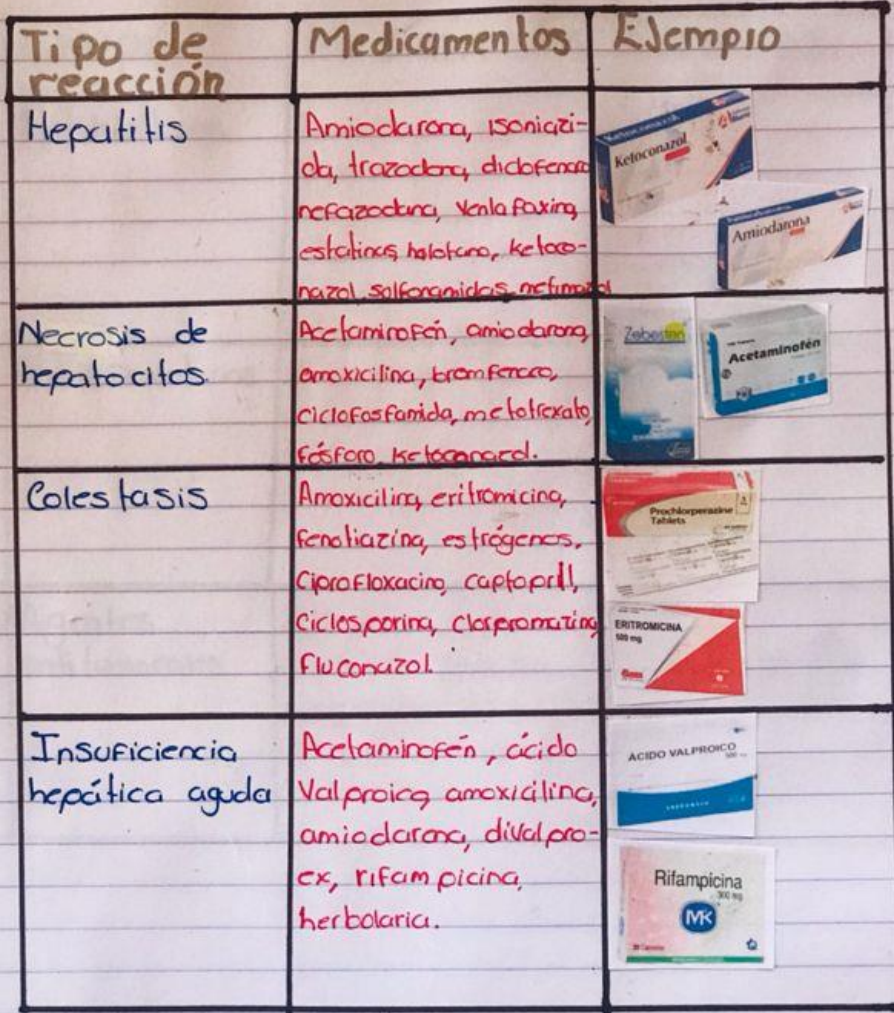 Tipo de
reacción
Medicamentos
Ejemplo
Hepatitis
Amiodarona, isoniazi-
da, trazodona, diclofenaco
nefazodona, Venlafaxina
estatinas, halotano, ketoco-
nazol, sulfonamidas, metimazol
Ketoconazol
Amiodarona
Necrosis de
hepatocitos.
Acetaminofén, amiodarona,
amoxicilina, bromfenaco,
ciclofosfamida, metotrexato,
fósforo, Ketoconazol.
Zebesten
Acetaminofén
Colestasis
Amoxicilina, eritromicina,
fenotiazina, estrógenos,
Ciprofloxacino, captopril,
Ciclosporina, Clorpromazina
Fluconazol.
Prochlorperazine
Tablets
ERITROMICINA
500 mg
Insuficiencia
hepática aguda
Acetaminofén, ácido
Valproico, amoxicilina,
amiodarona, divalpro-
ex, rifampicina,
herbolaria.
ACIDO VALPROICO
Rifampicina
300 mg
MK